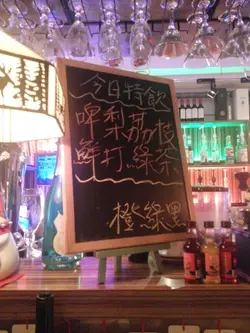 今日特飲
啤梨荔枝
鮮打綠茶
橙綠黑